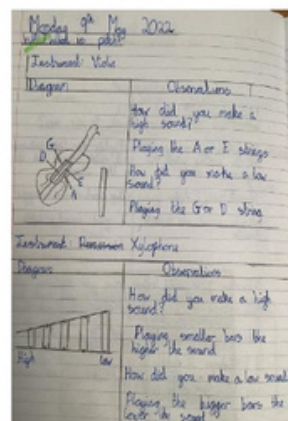 Monday 9th May 2022
Instrument: Violin
Diagram
Observations
How did you make a
high sound?
Playing the A or E strings
How did you make a low
sound?
Playing the G or D string
G
D
E
A
Instrument: Xylophone
Diagram
Observations
How did you make a high
sound?
Playing smaller bars the
higher the sound
How did you make a low sound
Playing the bigger bars the
lower the sound
High
low